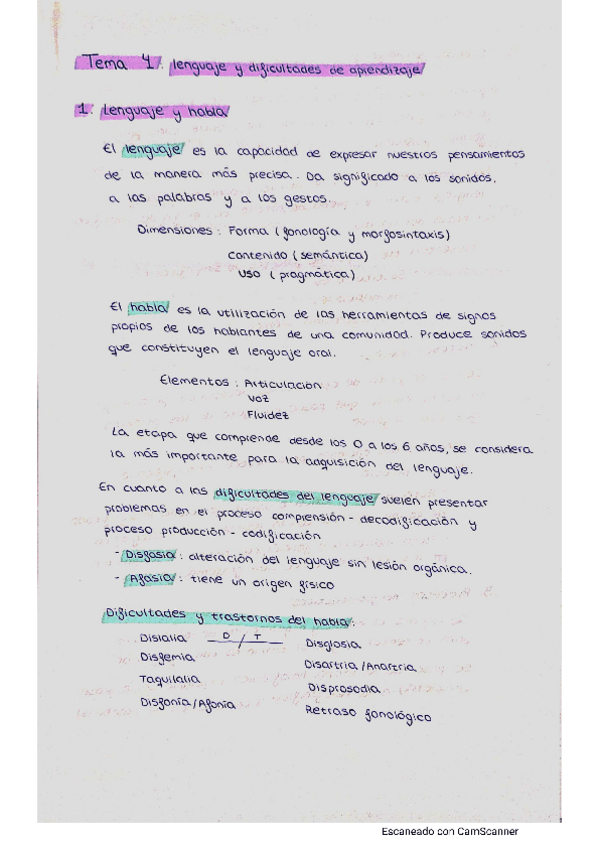 Tema 4: lenguaje y dificultades de aprendizaje
1. Lenguaje y habla
El lenguaje es la capacidad de expresar nuestros pensamientos
de la manera más precisa. Da significado a los sonidos,
a las palabras y a los gestos.
Dimensiones: Forma (fonología y morfosintaxis)
Contenido (semántica)
Uso (pragmática)
El habla es la utilización de las herramientas de signos
propios de los hablantes de una comunidad. Produce sonidos
que constituyen el lenguaje oral.
Elementos: Articulación
Voz
Fluidez
La etapa que comprende desde los 0 a los 6 años, se considera
la más importante para la adquisición del lenguaje.
En cuanto a las dificultades del lenguaje suelen presentar
problemas en el proceso comprensión - decodificación y
proceso producción - codificación
- Disfasia: alteración del lenguaje sin lesión orgánica.
- Afasia: tiene un origen físico
Dificultades y trastornos del habla:
Dislalia D / T Disglosia
Disfemia Disartria/Anartria
Taquilalia Disprosodia
Disfonía/Afonía Retraso fonológico
Escaneado con CamScanner